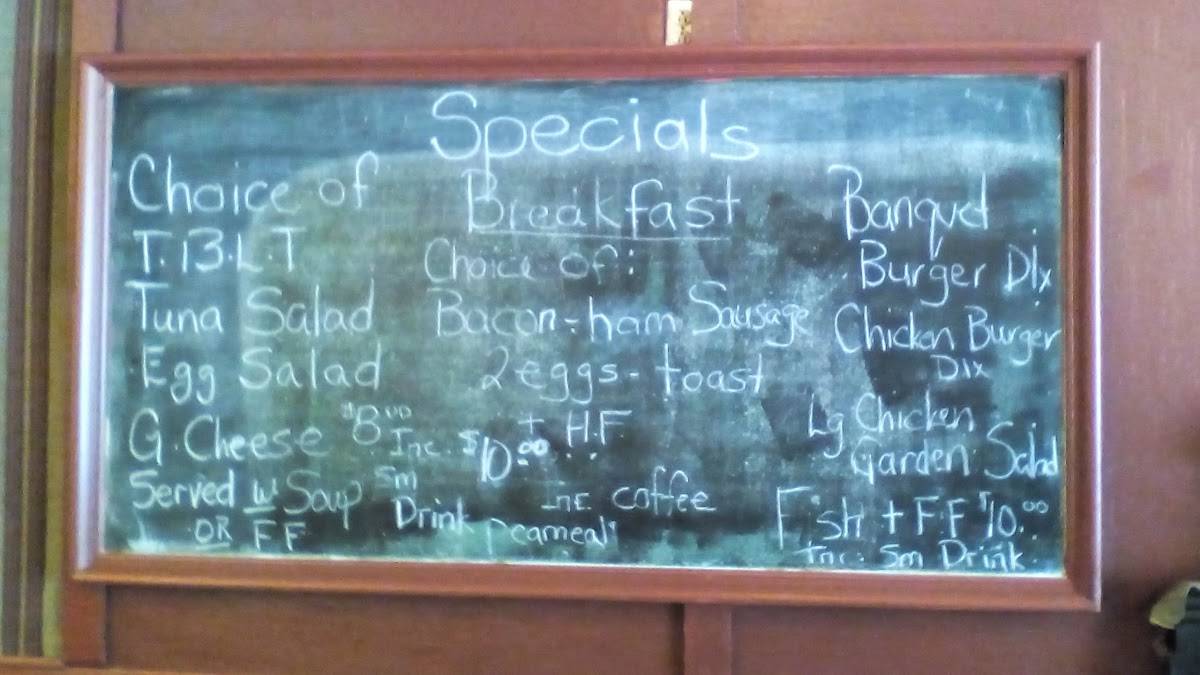 Specials
Choice of
T.B.L.T
Tuna Salad
Egg Salad
G. Cheese $8.00
Inc.
Served w. Soup Sm
OR FF Drink
Breakfast
Choice of:
Bacon - ham Sausage
2 eggs - toast
+ H.F
$10.00
Inc coffee
peameal
Banquet
Burger Dlx
Chicken Burger
Dlx
Lg Chicken
Garden Salad
Fish + F.F $10.00
Inc. Sm Drink